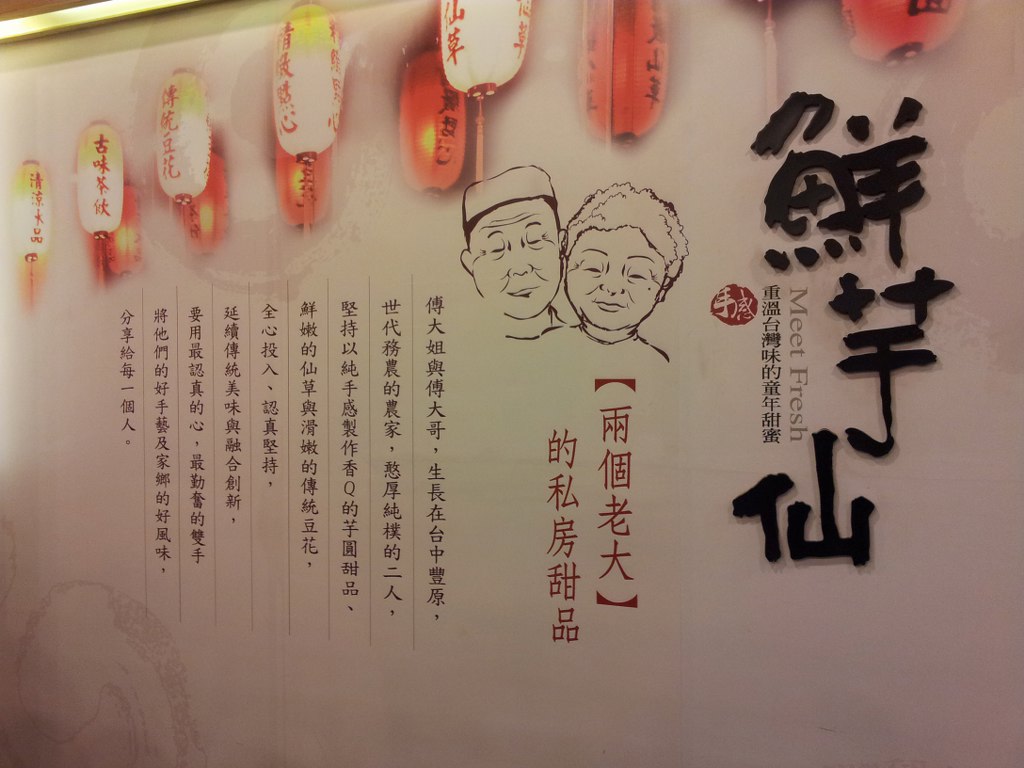 鮮芋仙
Meet Fresh
重溫台灣味的童年甜蜜
手感
【兩個老大】
的私房甜品
傅大姐與傅大哥，生長在台中豐原，
世代務農的農家，憨厚純樸的二人，
堅持以純手感製作香Q的芋圓甜品、
鮮嫩的仙草與滑嫩的傳統豆花，
全心投入、認真堅持，
延續傳統美味與融合創新，
要用最認真的心，最勤奮的雙手
將他們的好手藝及家鄉的好風味，
分享給每一個人。
仙草
傳統豆花
古味茶飲
清涼冰品